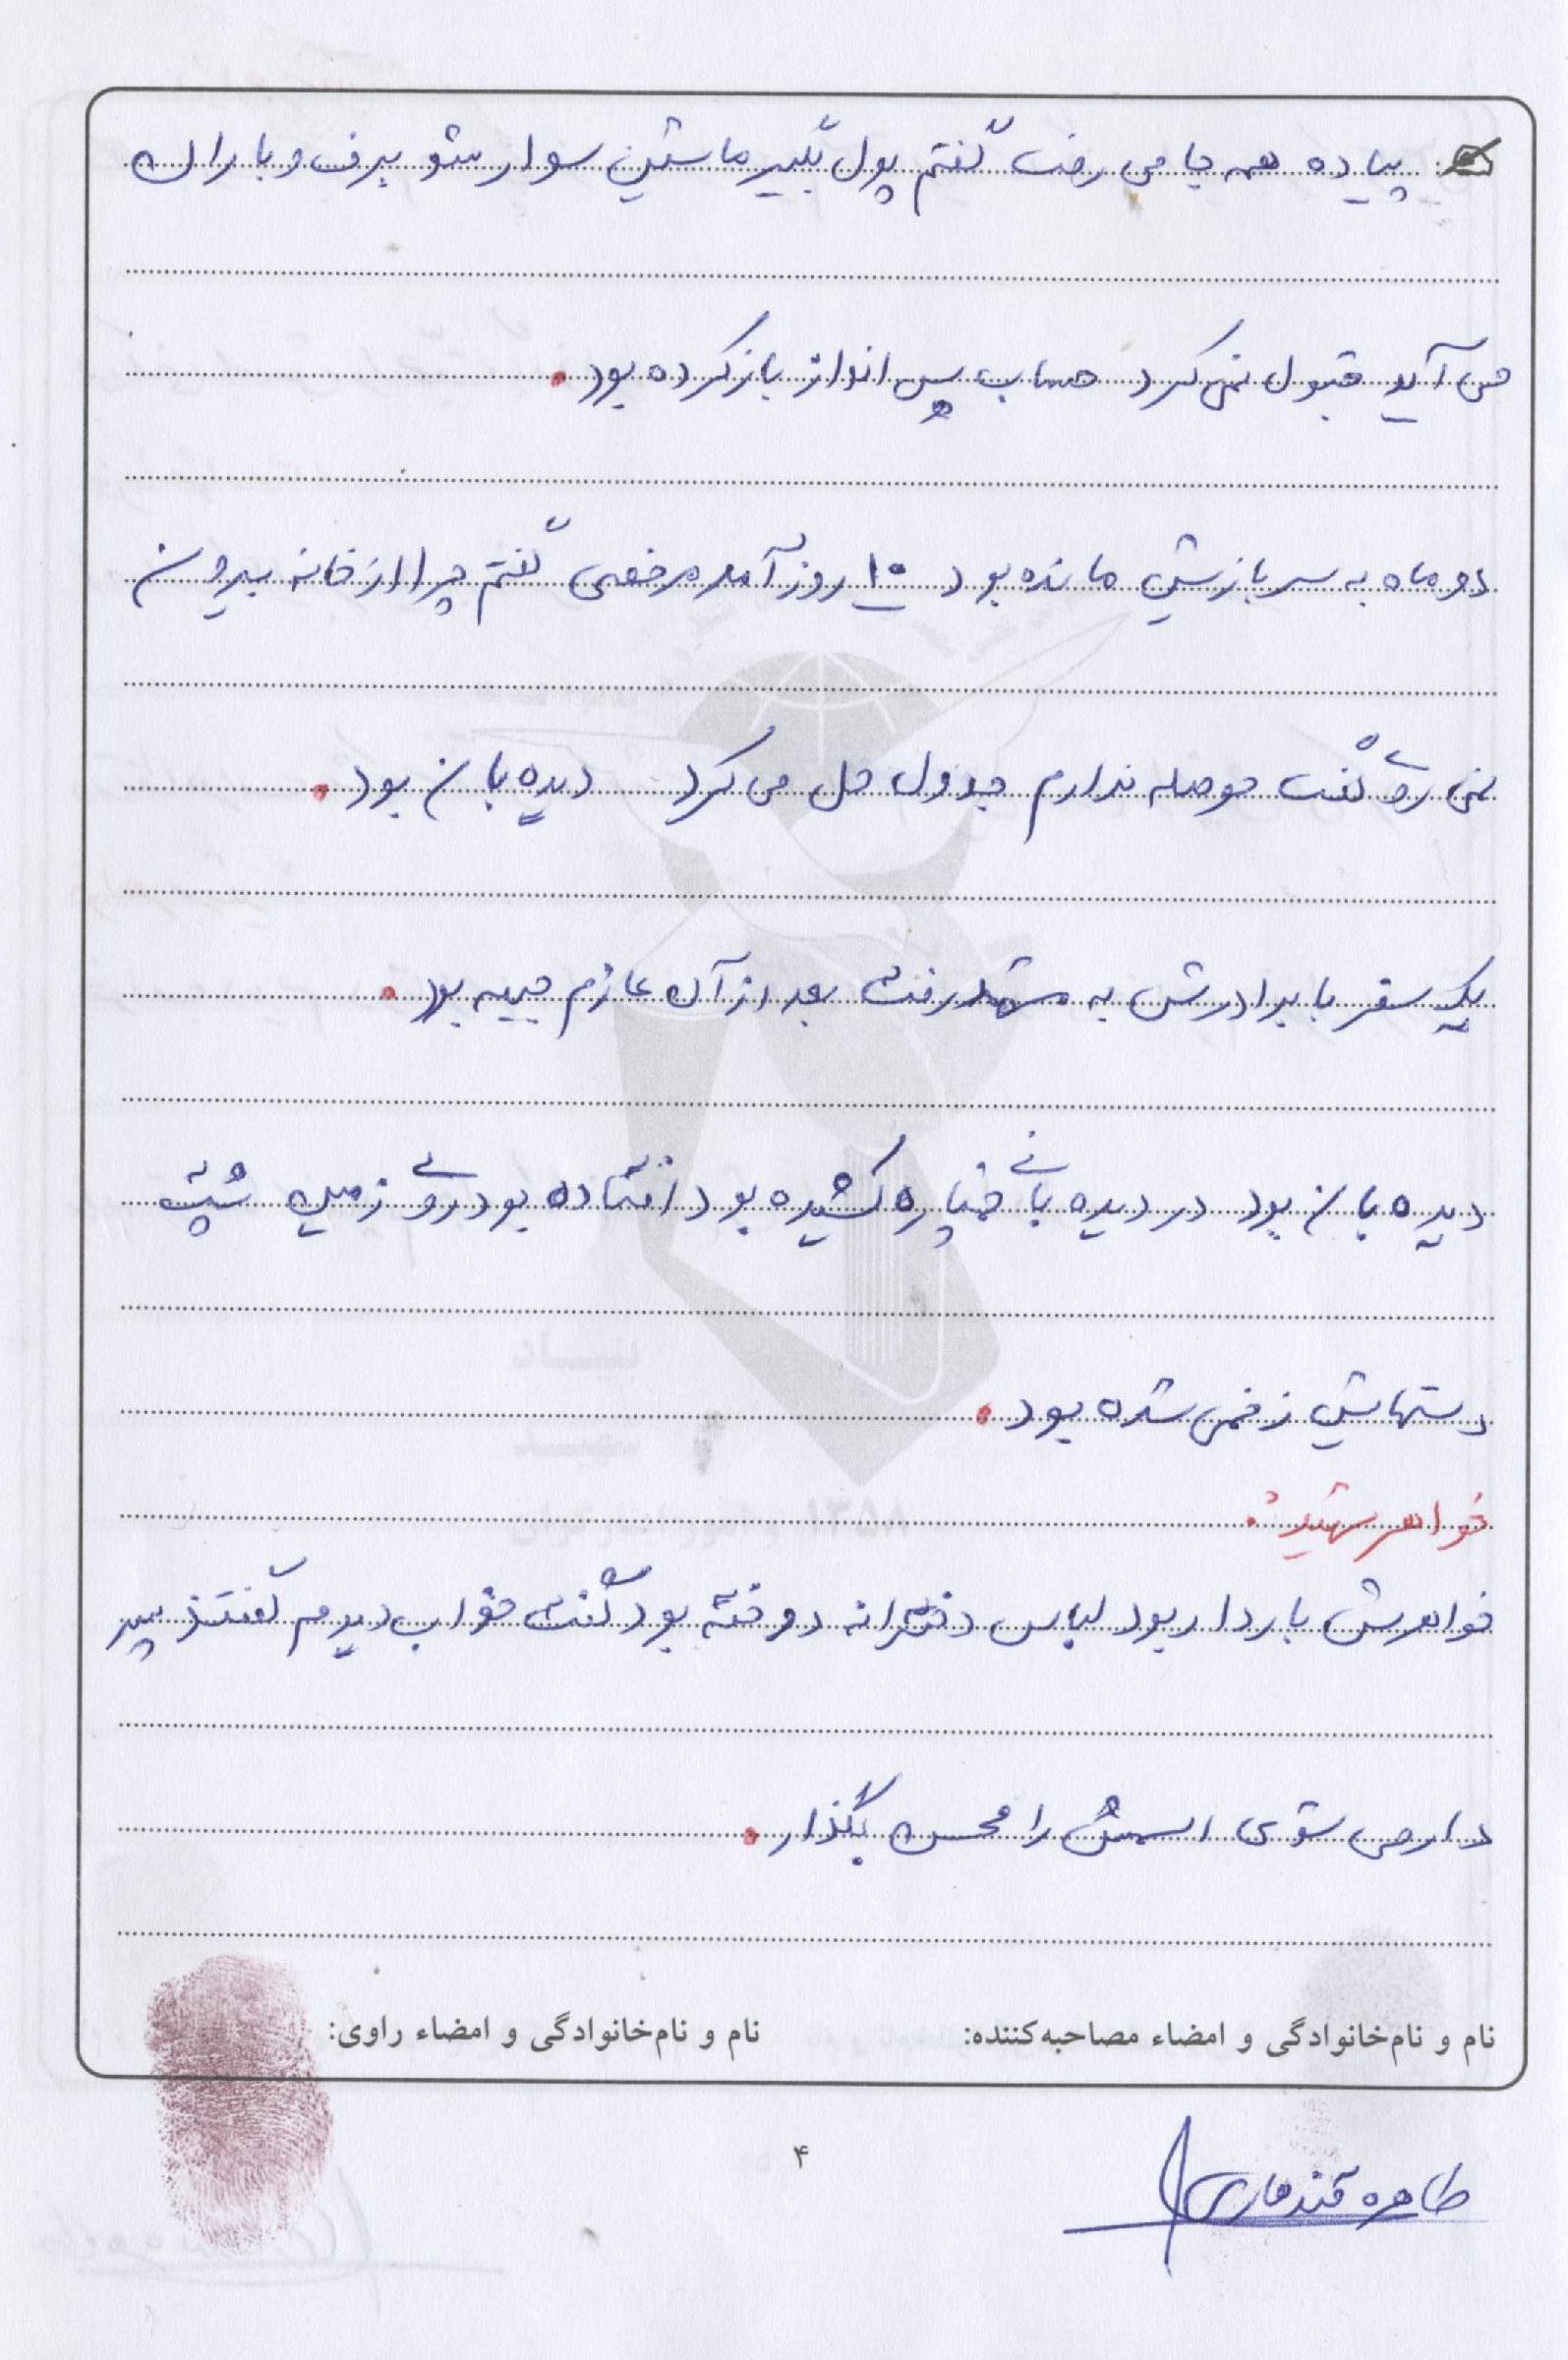 پیاده همه جا می رفت گفتم پول بگیر ماشین سوار شو برف و باران
می آید قبول نمی کرد حساب پس انداز باز کرده بود.
دو ماه به سربازیش مانده بود ۱۰ روز آمد مرخصی گفتم چرا از خانه بیرون
نمی ری گفت حوصله ندارم جدول حل می کرد دیده بان بود.
یک سفر با برادرش به مشهد رفت بعد از آن عازم جبهه بود.
دیده بان بود در دیده بانی خمپاره کشیده بود افتاده بود روی زمین پشت
دستهایش زخمی شده بود.
خواهر شهید:
خواهرش باردار بود لباس دخترانه دوخته بود گفت خواب دیدم گفتند پسر
دار می شوی اسمش را محسن بگذار.
نام و نام‌خانوادگی و امضاء مصاحبه‌کننده:
نام و نام‌خانوادگی و امضاء راوی:
طاهره قندهاری
۴